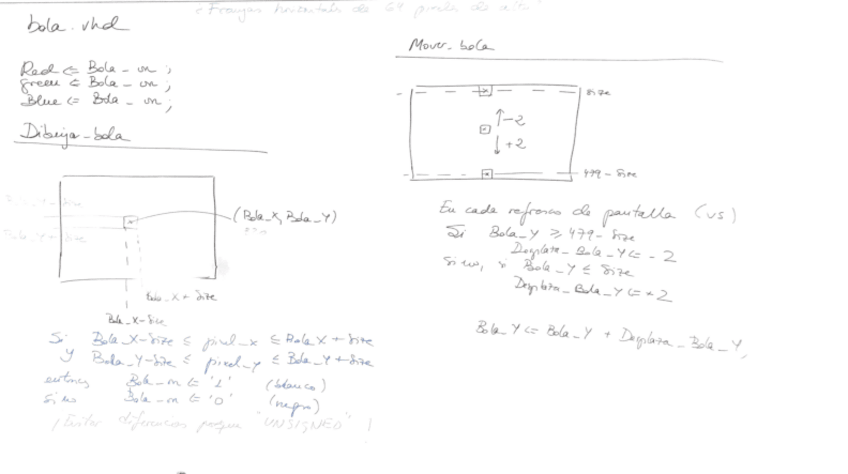 Franjas horizontales de 64 pixels de alto
bola.vhd
Red <= Bola_on;
green <= Bola_on;
Blue <= Bola_on;
Dibuja-bola
(Bola_X, Bola_Y)
Bola_Y+Size
Bola_X+Size
Bola_X-Size
Si Bola_X-Size ≤ pixel_x ≤ Bola X+Size
y Bola_Y-Size ≤ pixel_y ≤ Bola_Y+Size
entonces Bola_on <= '1' (blanco)
si no Bola_on <= '0' (negro)
¡ Evitar diferencias porque "UNSIGNED" !
Mover-bola
Size
-2
+2
479-Size
En cada refresco de pantalla (vs)
Si Bola_Y ≥ 479-Size
Desplaza_Bola_Y <= -2
si no, si Bola_Y ≤ Size
Desplaza_Bola_Y <= +2
Bola_Y <= Bola_Y + Desplaza_Bola_Y,